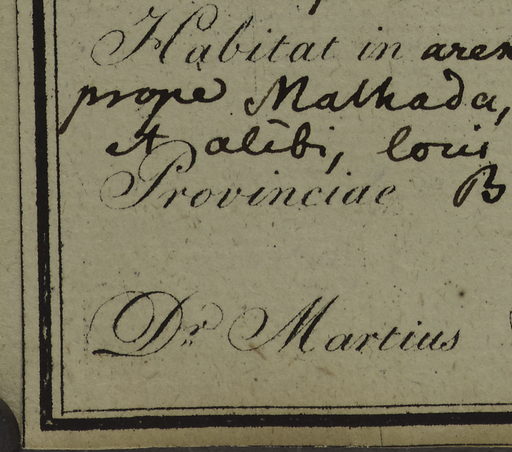 Habitat in aren
prope Malhada,
et alibi, locis
Provinciae B
Dr. Martius